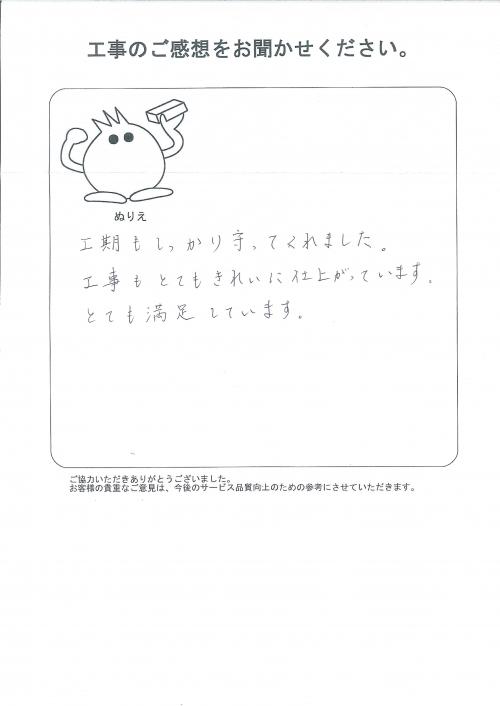 工事のご感想をお聞かせください。
ぬりえ
工期もしっかり守ってくれました。
工事もとてもきれいに仕上がっています。
とても満足しています。
ご協力いただきありがとうございました。
お客様の貴重なご意見は、今後のサービス品質向上のための参考にさせていただきます。